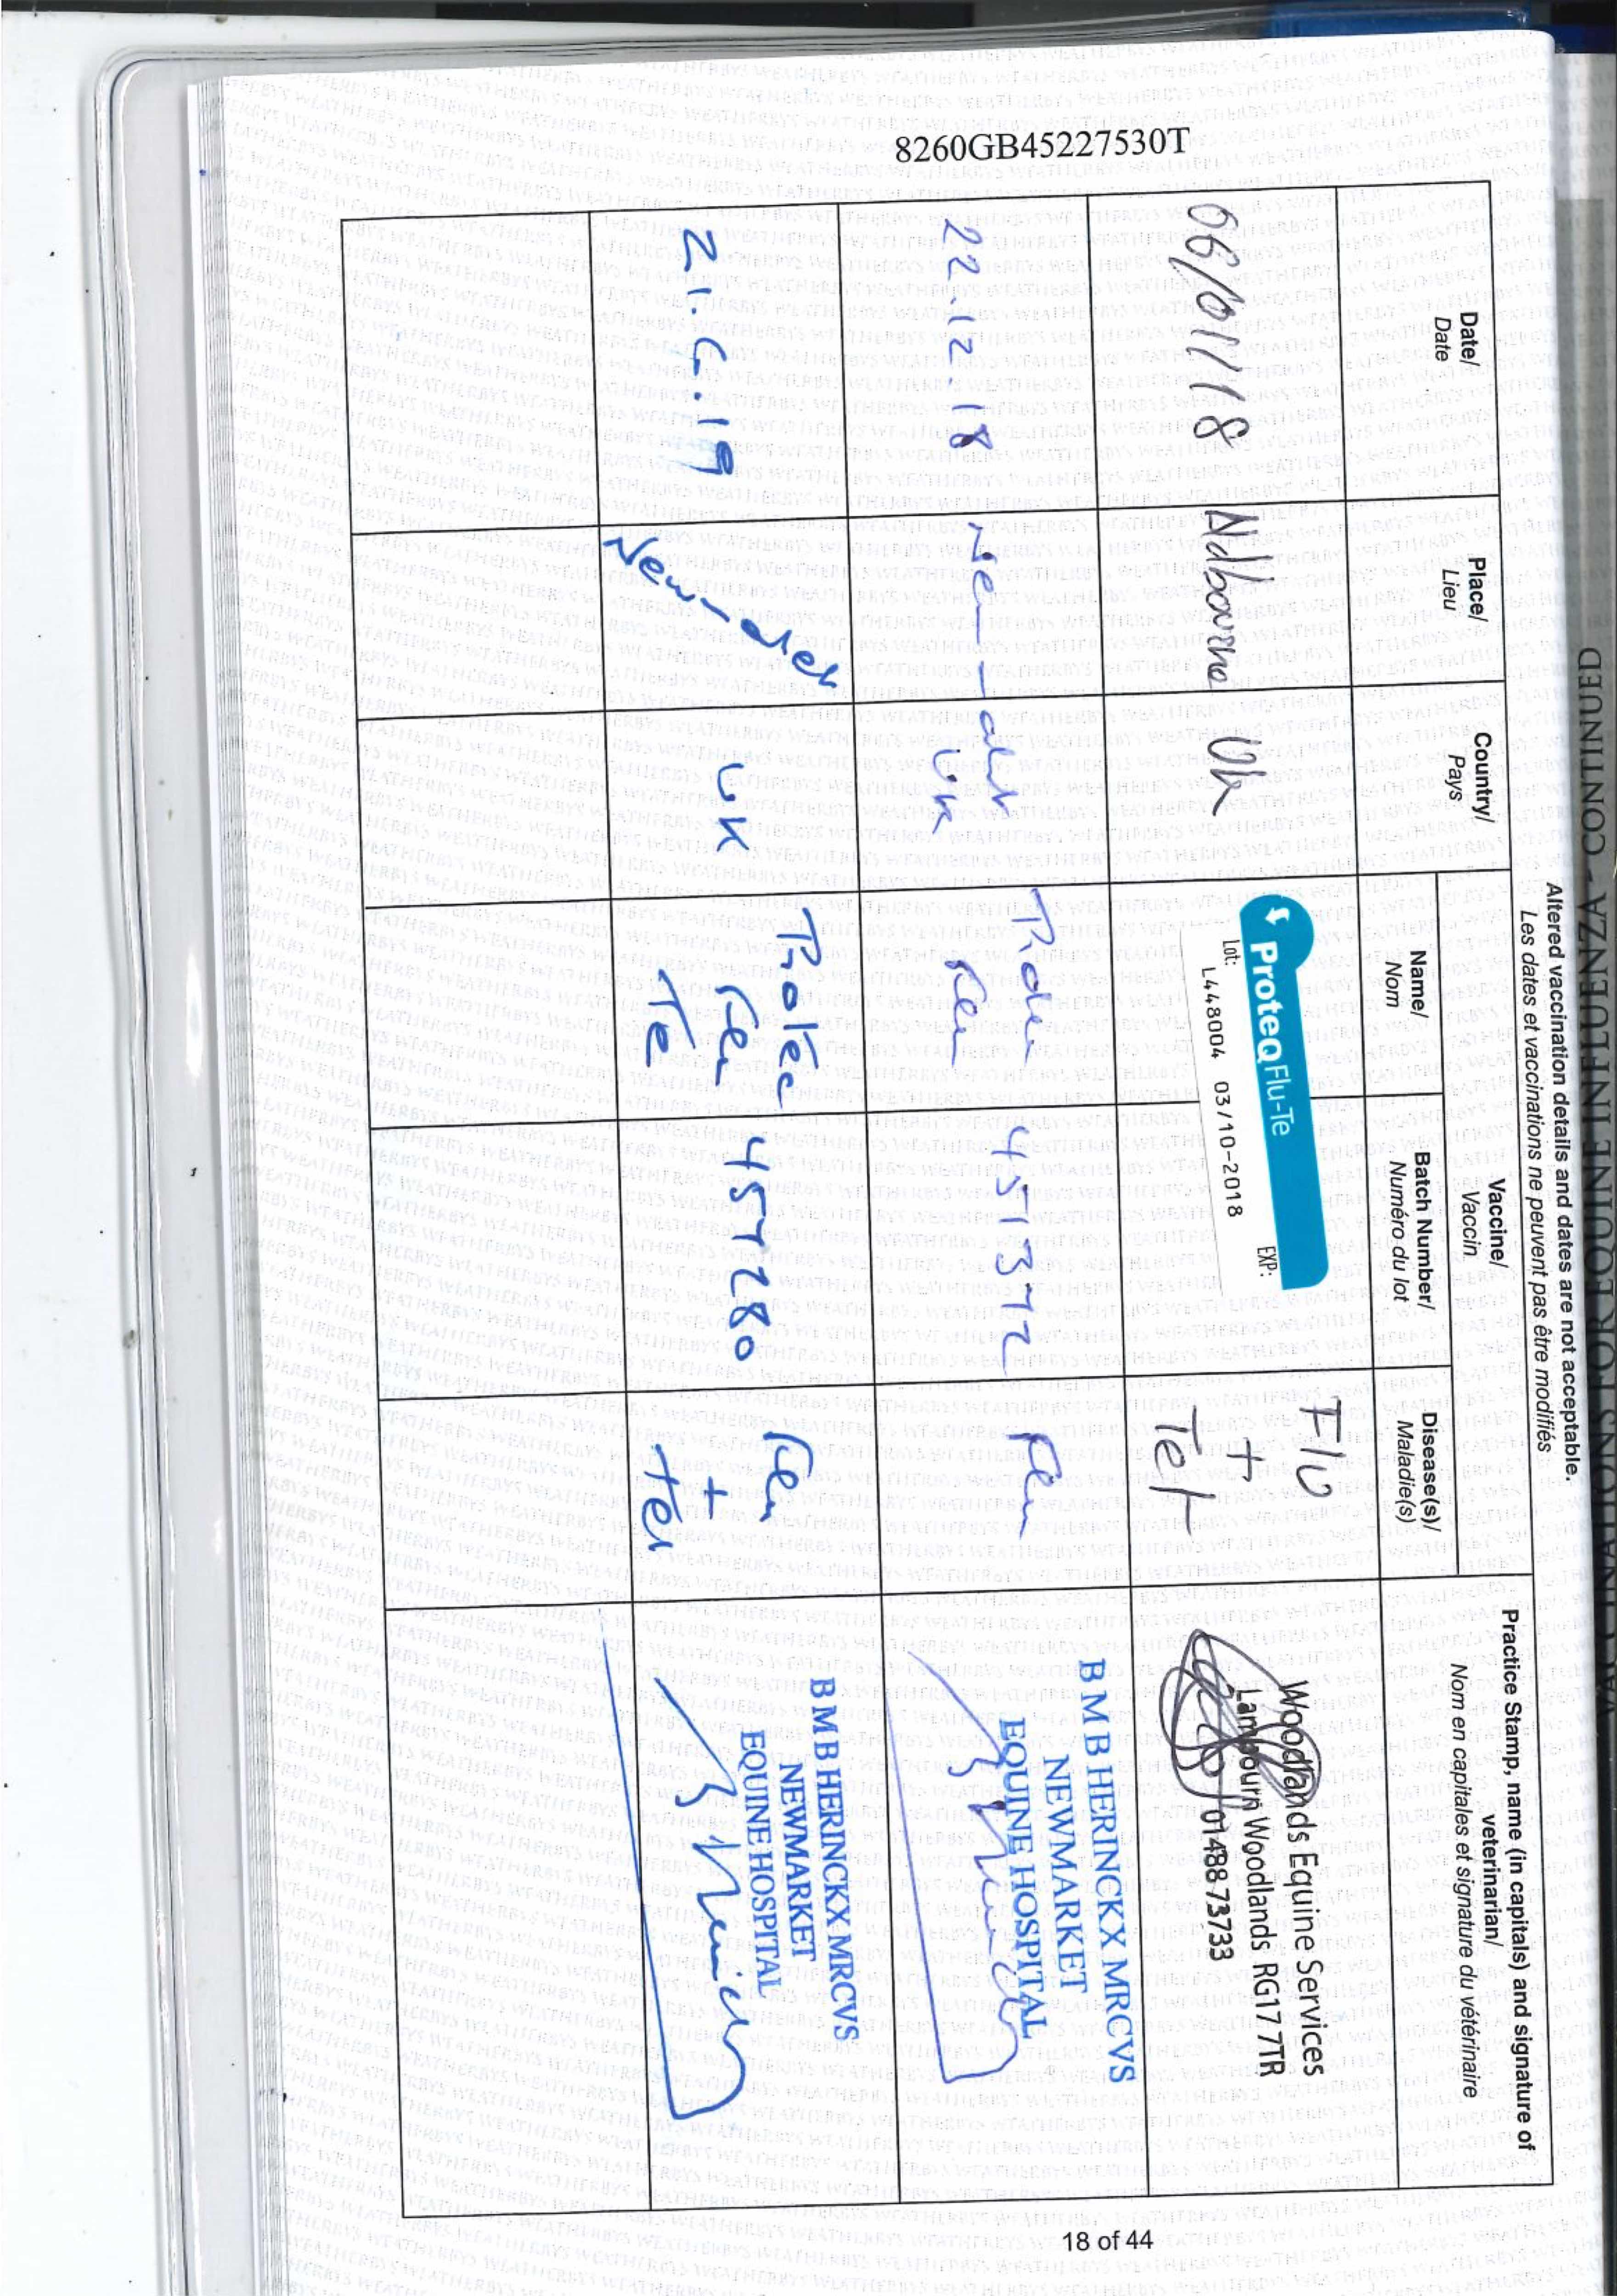 VACCINATIONS FOR EQUINE INFLUENZA - CONTINUED
Altered vaccination details and dates are not acceptable.
Les dates et vaccinations ne peuvent pas être modifiés
Date/
Date
Place/
Lieu
Country/
Pays
Vaccine/
Vaccin
Name/
Nom
Batch Number/
Numéro du lot
Disease(s)/
Maladie(s)
Practice Stamp, name (in capitals) and signature of
veterinarian/
Nom en capitales et signature du vétérinaire
06/01/18
UK
ProteQFlu-Te
Lot:
EXP:
L448004 03/10-2018
Flu
+
Tet
Woodlands Equine Services
Lambourn Woodlands RG17 7TR
01488 73733
22.12.18
Newmarket
UK
451372
Flu
B M B HERINCKX MRCVS
NEWMARKET
EQUINE HOSPITAL
21.6.19
Newmarket
UK
Proteq
Flu
Te
457280
Flu
+
tet
B M B HERINCKX MRCVS
NEWMARKET
EQUINE HOSPITAL
8260GB45227530T
18 of 44